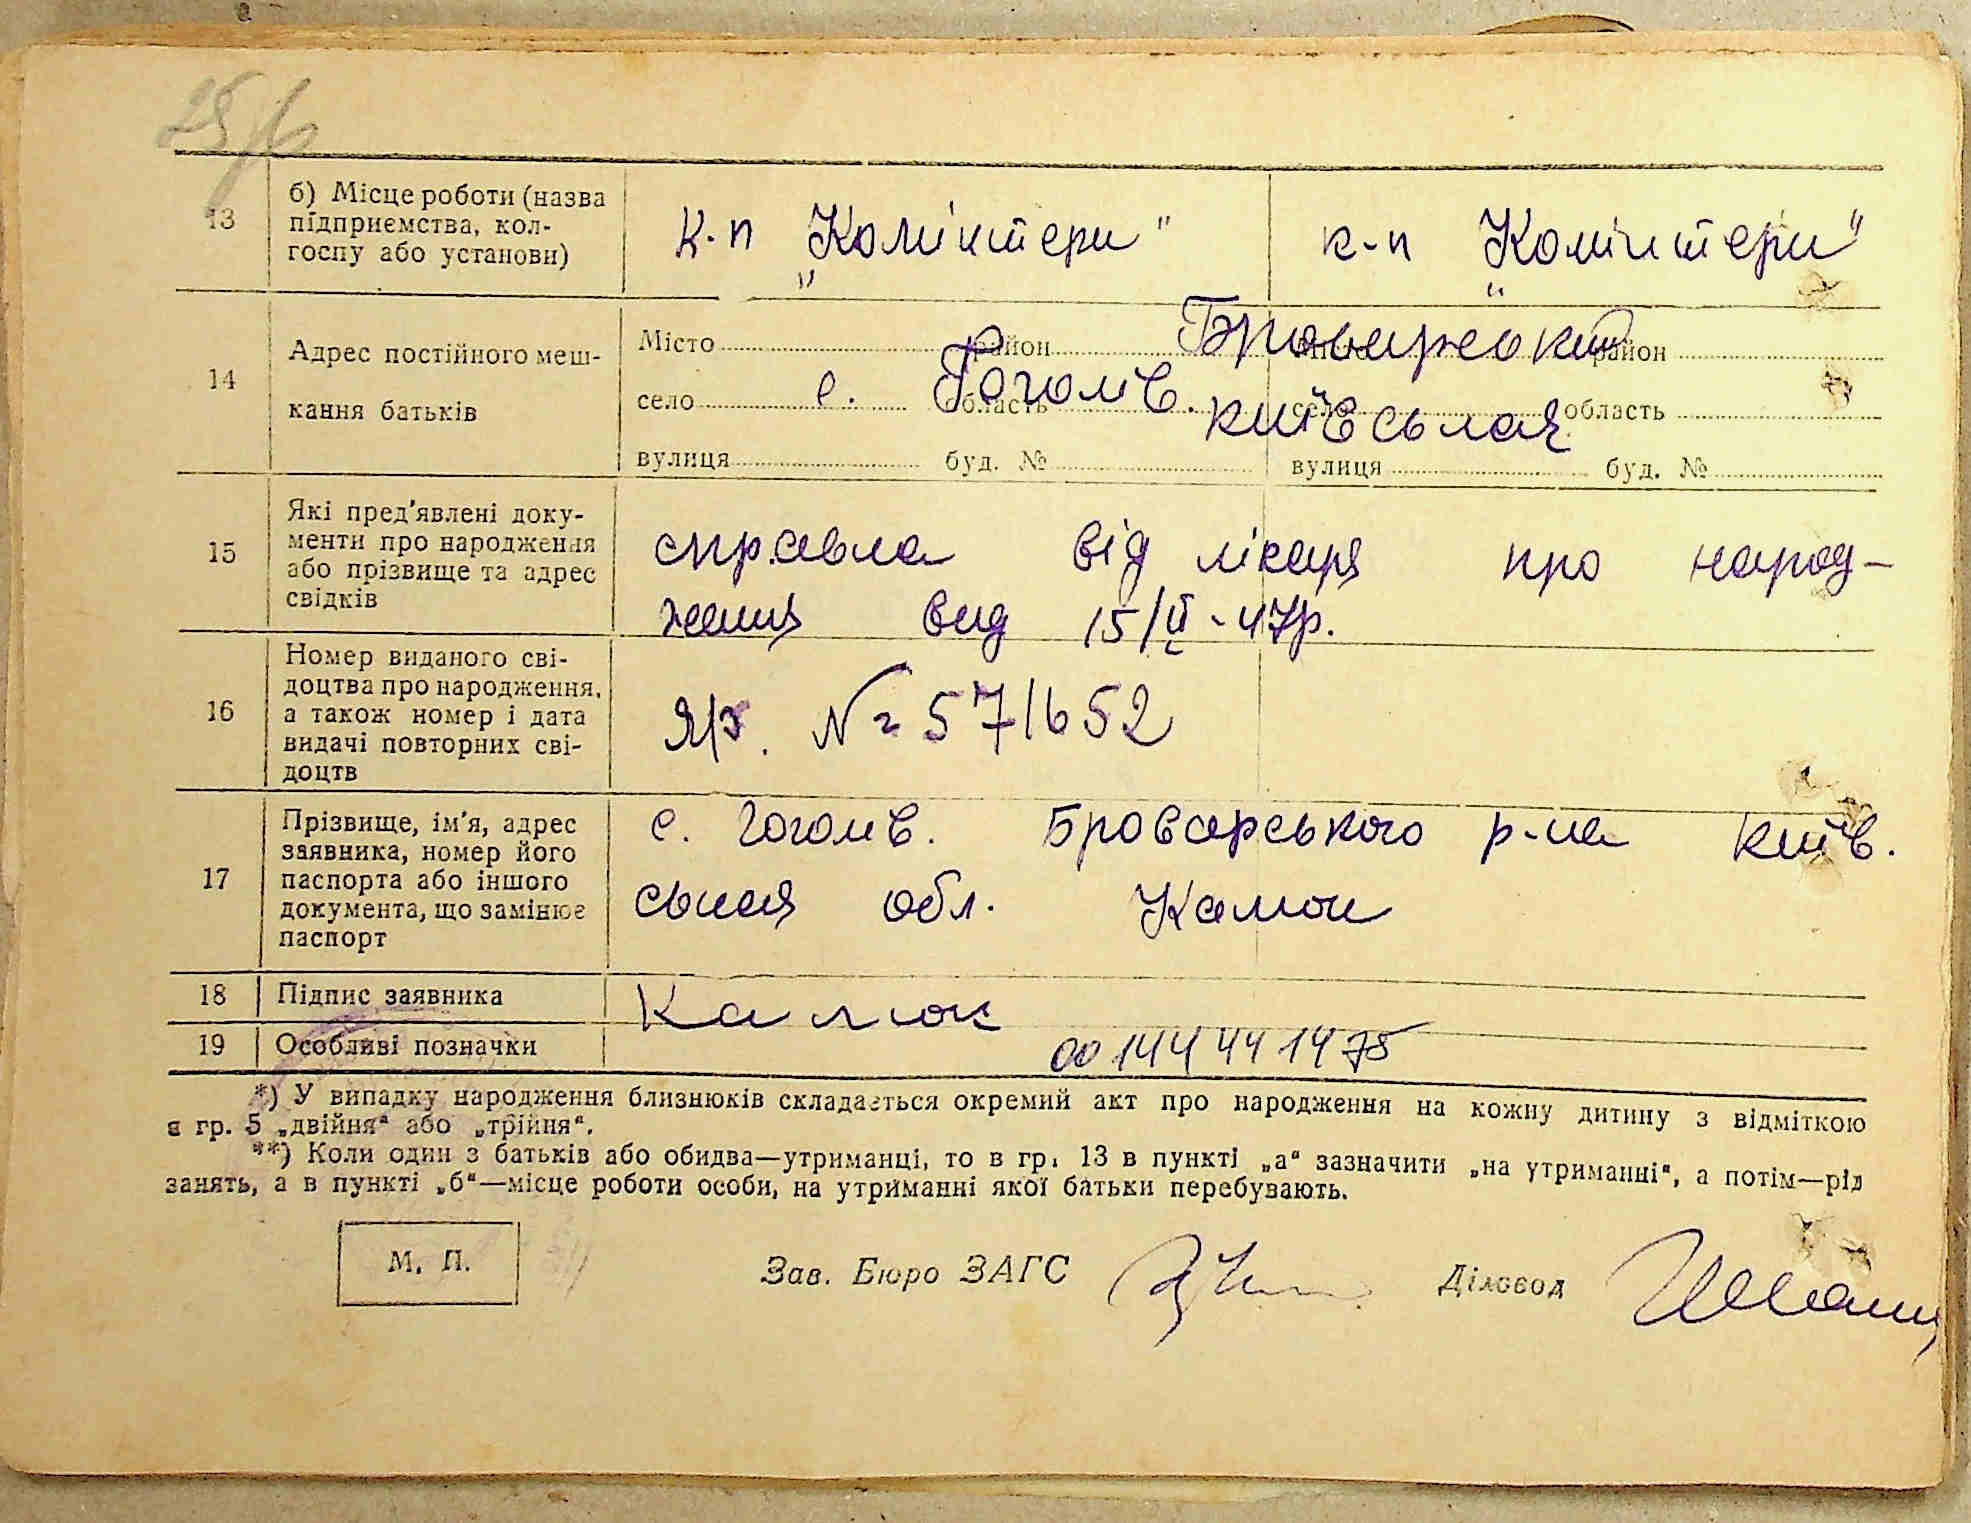 13 б) Місце роботи (назва підприємства, колгоспу або установи)
к-п „Комінтерн" к-п „Комінтерн"
14 Адрес постійного мешкання батьків
Місто район Броварський район
село с. Гоголів. область Київська село область
вулиця буд. № вулиця буд. №
15 Які пред'явлені документи про народження або прізвище та адрес свідків
справка від лікаря про народ-
ження вид 15/II-47р.
16 Номер виданого свідоцтва про народження, а також номер і дата видачі повторних свідоцтв
№ 571652
17 Прізвище, ім'я, адрес заявника, номер його паспорта або іншого документа, що замінює паспорт
с. Гоголів. Броварського р-на Київ.
ська обл.
18 Підпис заявника
19 Особливі позначки
*) У випадку народження близнюків складається окремий акт про народження на кожну дитину з відміткою
в гр. 5 „двійня" або „трійня".
**) Коли один з батьків або обидва—утриманці, то в гр. 13 в пункті „а" зазначити „на утриманні", а потім—рід
занять, а в пункті „б"—місце роботи особи, на утриманні якої батьки перебувають.
М. П. Зав. Бюро ЗАГС Діловод